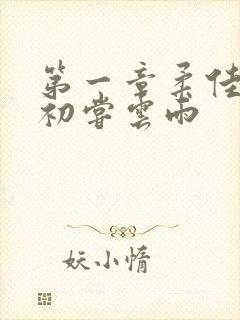 第一章柔佳
初尝雲雨
妖小惰